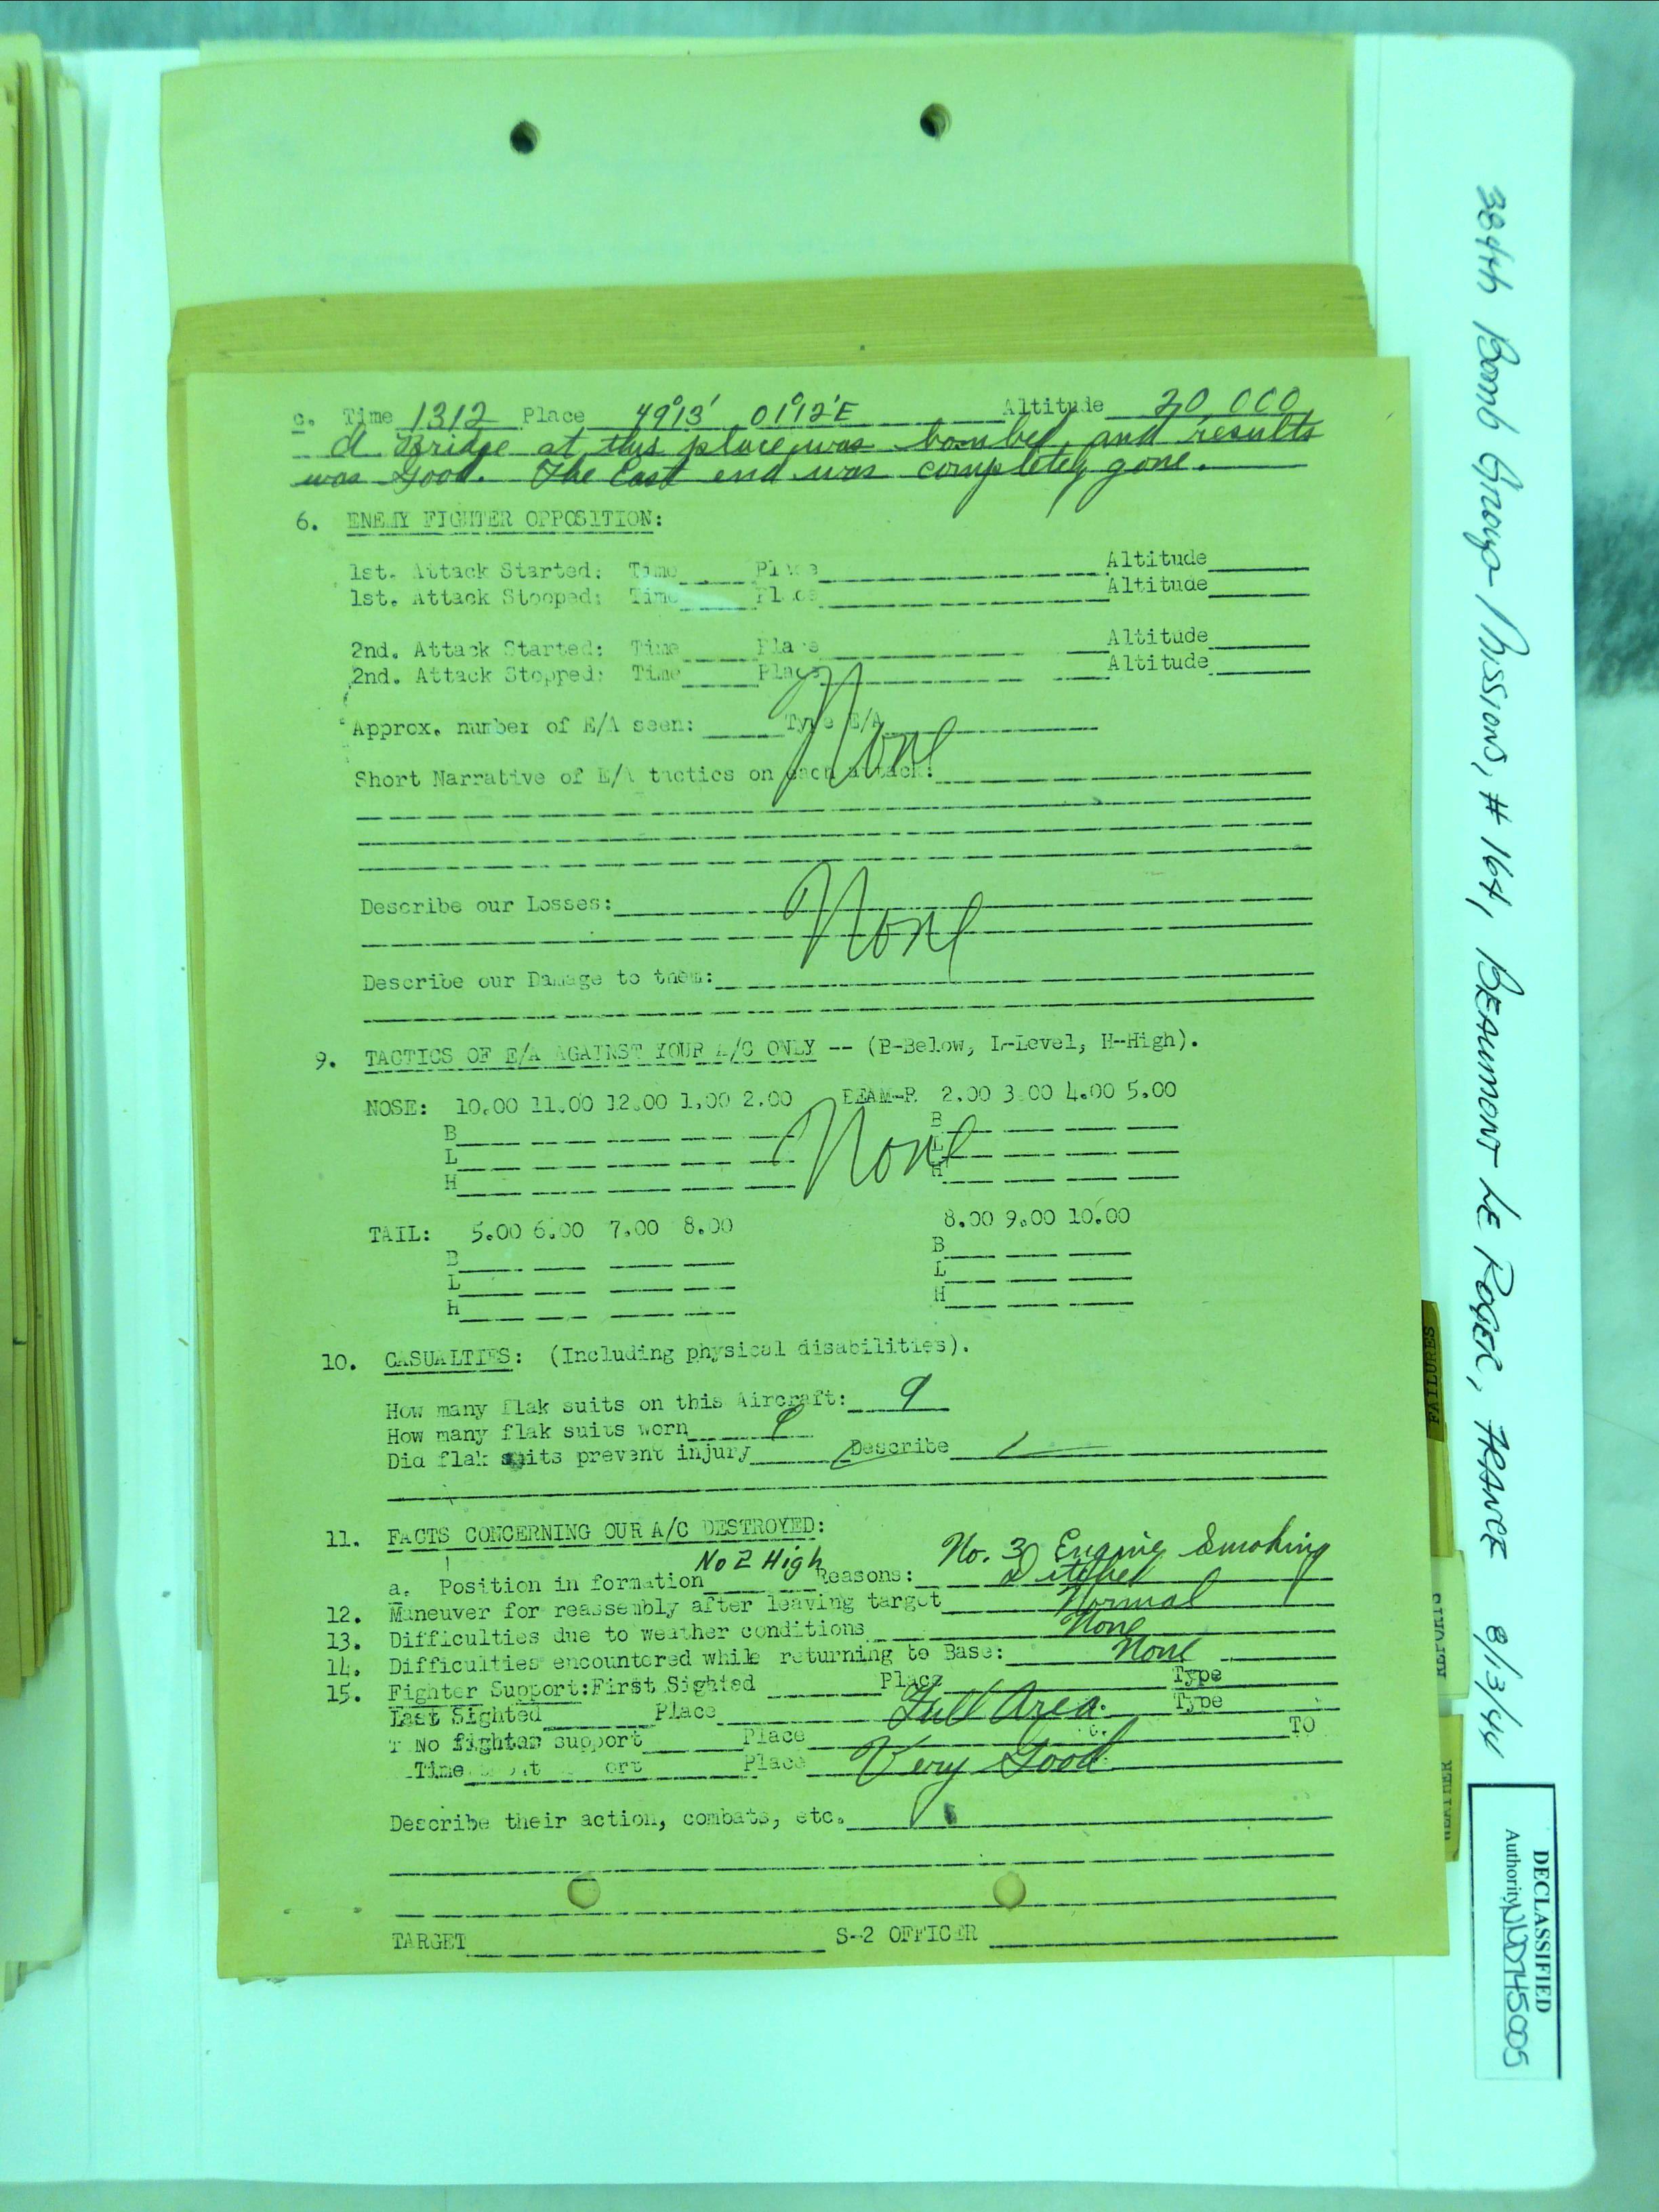 c. Time 1312 Place 49°13' 01°12'E Altitude 20,000
A Bridge at this place was bombed, and results
was Good. The East end was completely gone.
6. ENEMY FIGHTER OPPOSITION:
1st. Attack Started: Time Place Altitude
1st. Attack Stooped: Time Place Altitude
2nd. Attack Started: Time Place Altitude
2nd. Attack Stopped: Time Place Altitude
Approx. number of E/A seen: Type E/A
None
Short Narrative of E/A tactics on each attack:
Describe our Losses: None
Describe our Damage to them:
9. TACTICS OF E/A AGAINST YOUR A/C ONLY -- (B-Below, L-Level, H-High).
NOSE: 10.00 11.00 12.00 1.00 2.00 BEAM-R 2.00 3.00 4.00 5.00
B B
L None L
H H
TAIL: 5.00 6.00 7.00 8.00 8.00 9.00 10.00
B B
L L
H H
10. CASUALTIES: (Including physical disabilities).
How many flak suits on this Aircraft: 9
How many flak suits worn 9
Did flak suits prevent injury Describe
11. FACTS CONCERNING OUR A/C DESTROYED:
a. Position in formation No 2 High Reasons: No. 3 Engine Smoking
Ditched
12. Maneuver for reassembly after leaving target Normal
13. Difficulties due to weather conditions None
14. Difficulties encountered while returning to Base: None
15. Fighter Support: First Sighted Place Type
Last Sighted Place Full Area. Type
No fighter support Place TO
Time Place Very Good
Describe their action, combats, etc.
TARGET S-2 OFFICER
384th Bomb Group - Missions, # 164, BEAUMONT LE ROGER, FRANCE 8/13/44
FAILURES
REPORTS
WEATHER
DECLASSIFIED
Authority NND745005